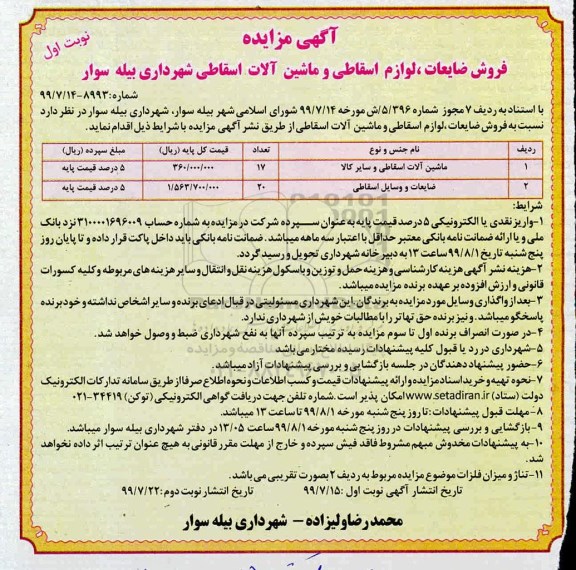 آگهی مزایده
نوبت اول
فروش ضایعات ،لوازم اسقاطی و ماشین آلات اسقاطی شهرداری بیله سوار
شماره:۸۹۹۳-۹۹/۷/۱۴
با استناد به ردیف ۷ مجوز شماره ۵/۳۹۶/ش مورخه ۹۹/۷/۱۴ شورای اسلامی شهر بیله سوار، شهرداری بیله سوار در نظر دارد
نسبت به فروش ضایعات،لوازم اسقاطی و ماشین آلات اسقاطی از طریق نشر آگهی مزایده با شرایط ذیل اقدام نماید.
ردیف نام جنس و نوع تعداد قیمت کل پایه (ریال) مبلغ سپرده (ریال)
۱ ماشین آلات اسقاطی و سایر کالا ۱۷ ۳۶۰/۰۰۰/۰۰۰ ۵ درصد قیمت پایه
۲ ضایعات و وسایل اسقاطی ۲۰ ۱/۵۶۳/۷۰۰/۰۰۰ ۵ درصد قیمت پایه
شرایط:
۱-واریز نقدی یا الکترونیکی ۵ درصد قیمت پایه به عنوان سپرده شرکت در مزایده به شماره حساب ۳۱۰۰۰۰۱۶۹۶۰۰۹ نزد بانک
ملی و یا ارائه ضمانت نامه بانکی معتبر حداقل با اعتبار سه ماهه میباشد. ضمانت نامه بانکی باید داخل پاکت قرار داده و تا پایان روز
پنج شنبه تاریخ ۹۹/۸/۱ ساعت ۱۳ به دبیرخانه شهرداری تحویل و رسید گردد.
۲-هزینه نشر آگهی هزینه کارشناسی و هزینه حمل و توزین و باسکول هزینه نقل و انتقال و سایر هزینه های مربوطه و کلیه کسورات
قانونی و ارزش افزوده بر عهده برنده مزایده میباشد.
۳-بعد از واگذاری وسایل مورد مزایده به برندگان ،این شهرداری مسئولیتی در قبال ادعای برنده و سایر اشخاص نداشته و خود برنده
پاسخگو میباشد. و نیز برنده حق تهاتر را با مطالبات خویش از شهرداری ندارد.
۴-در صورت انصراف برنده اول تا سوم مزایده به ترتیب سپرده آنها به نفع شهرداری ضبط و وصول خواهد شد.
۵-شهرداری در رد یا قبول کلیه پیشنهادات رسیده مختار می باشد.
۶-حضور پیشنهاد دهندگان در جلسه بازگشایی و بررسی پیشنهادات آزاد میباشد.
۷-نحوه تهیه و خرید اسناد مزایده و ارائه پیشنهادات قیمت و کسب اطلاعات و نحوه اطلاع صرفا از طریق سامانه تدارکات الکترونیک
دولت (ستاد) www.setadiran.ir امکان پذیر است.شماره تلفن جهت دریافت گواهی الکترونیکی (توکن) ۳۴۴۱۹-۰۲۱
۸-مهلت قبول پیشنهادات :تا روز پنج شنبه مورخه ۹۹/۸/۱ تا ساعت ۱۳ میباشد.
۹-بازگشایی و بررسی پیشنهادات در روز پنج شنبه مورخه ۹۹/۸/۱ ساعت ۱۳/۰۵ در دفتر شهرداری بیله سوار میباشد.
۱۰-به پیشنهادات مخدوش مبهم مشروط فاقد فیش سپرده و خارج از مهلت مقرر قانونی به هیچ عنوان ترتیب اثر داده نخواهد
شد.
۱۱-تناژ و میزان فلزات موضوع مزایده مربوط به ردیف ۲ بصورت تقریبی می باشد.
تاریخ انتشار آگهی نوبت اول :۹۹/۷/۱۵ تاریخ انتشار نوبت دوم :۹۹/۷/۲۲
محمدرضا ولیزاده – شهرداری بیله سوار